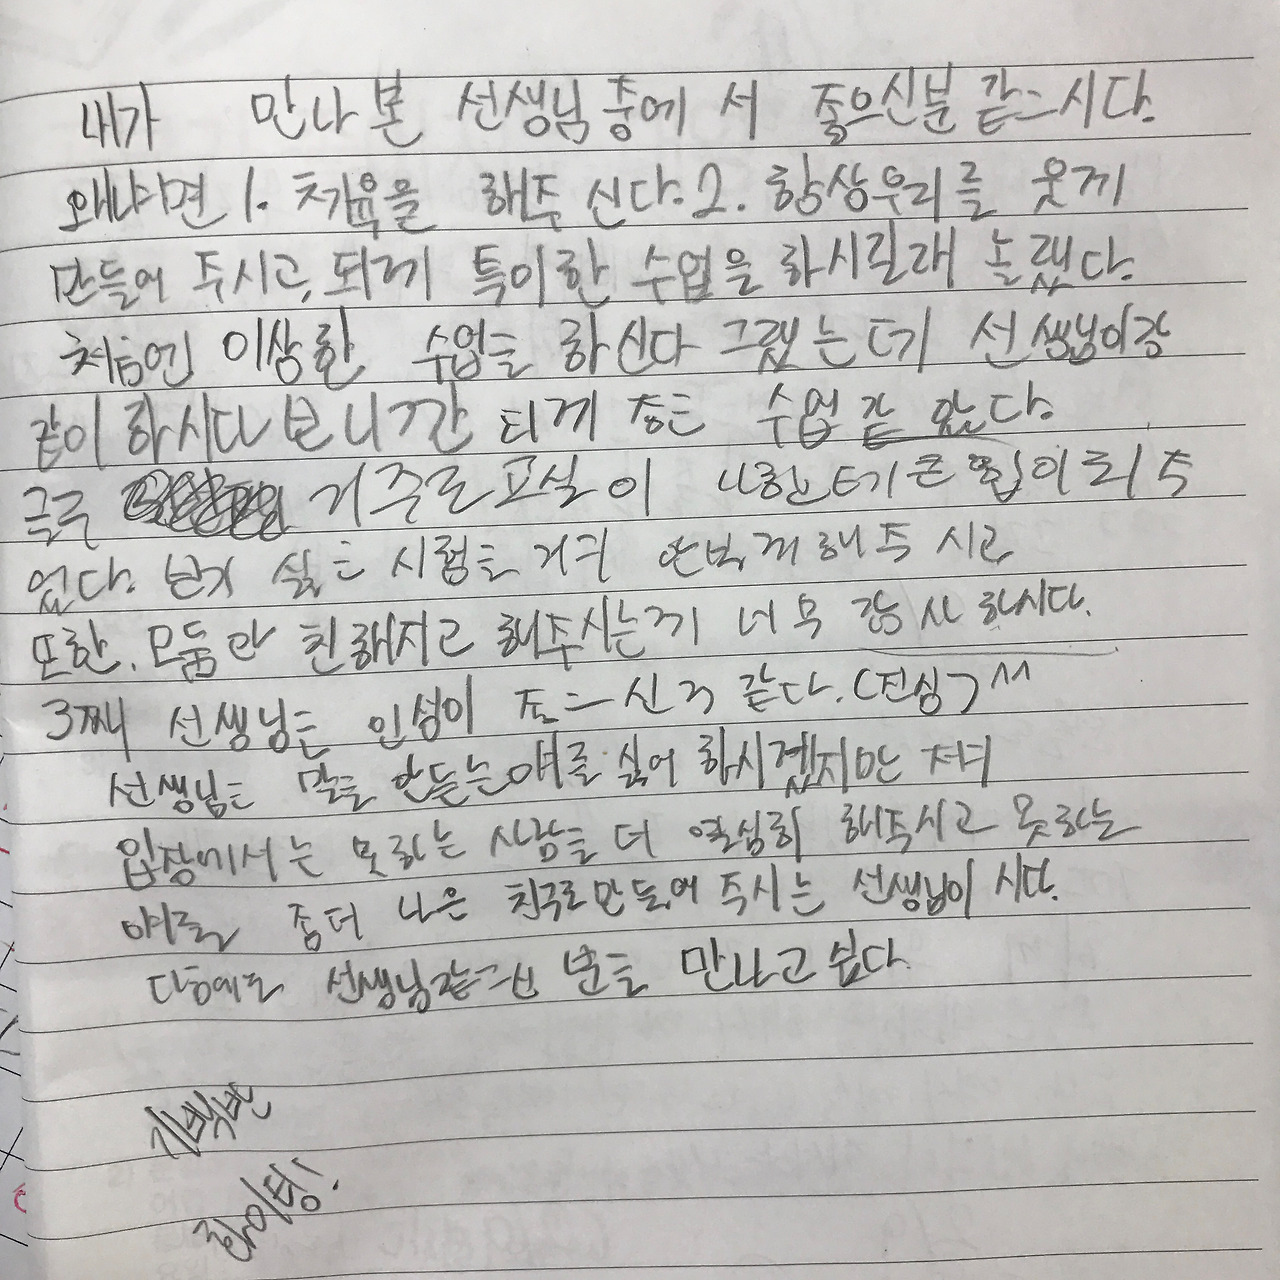 내가 만나 본 선생님 중에 서 좋으신분 같으시다.
왜냐면 1. 체육을 해주 신다. 2. 항상우리를 웃게
만들어 주시고, 되게 특이한 수업을 하시길래 놀랬다.
처음엔 이상한 수업을 하신다 그랬는데 선생님이랑
같이 하시다 보니깐 되게 좋은 수업 같 았다.
글구 거주르 교실이 나한테 큰 힘이 되 주
었다. 보기 싫은 시험을 거의 안보게 해 주 시고
또한, 모둠과 친해지고 해주시는게 너무 감사 하시다.
3째 선생님은 인성이 좋으신거 같다. (진심) ^^
선생님은 말을 안듣는 애를 싫어 하시겠지만 저의
입장에서는 못하는 사람을 더 열심히 해주시고 못하는
애를 좀더 나은 친구로 만들어 주시는 선생님이 시다.
다음에도 선생님같으신 분을 만나고 싶다.
기백반
화이팅!